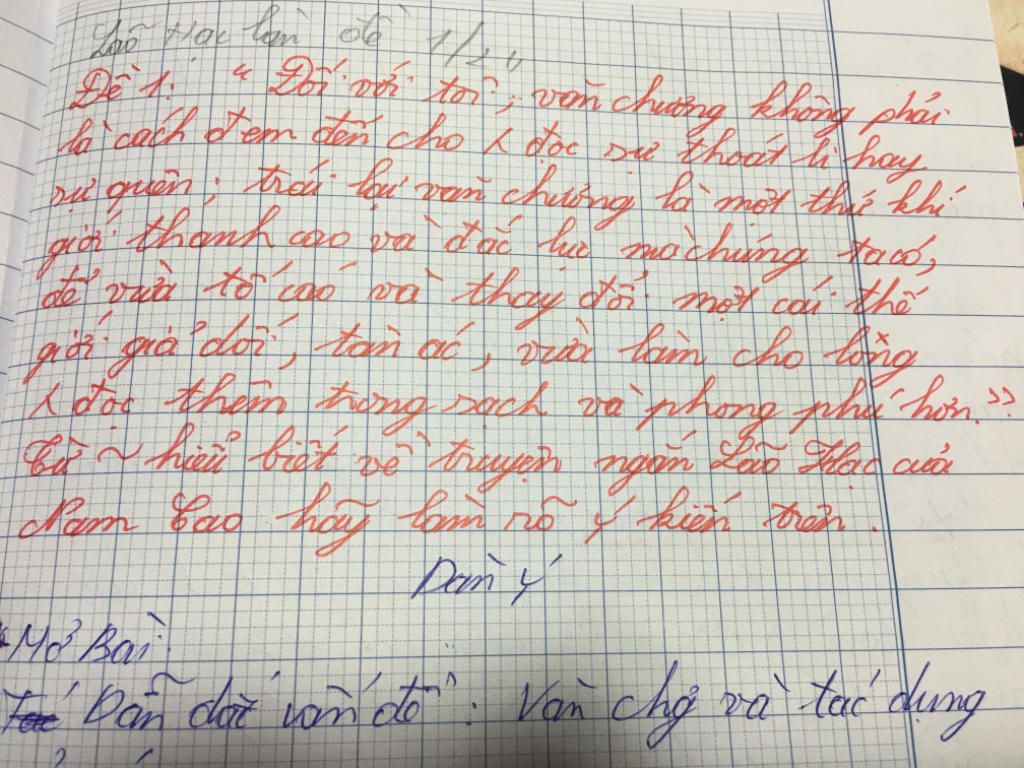 Lão Hạc làm đề 1/2
Đề 1: "Đối với tôi, văn chương không phải
là cách đem đến cho λ đọc sự thoát li hay
sự quên; trái lại văn chương là một thứ khí
giới thanh cao và đắc lực mà chúng ta có,
để vừa tố cáo và thay đổi một cái thế
giới giả dối, tàn ác, vừa làm cho lòng
λ đọc thêm trong sạch và phong phú hơn."
Từ ~ hiểu biết về truyện ngắn Lão Hạc của
Nam Cao hãy làm rõ ý kiến trên.
Dàn ý
Mở Bài:
Dẫn dắt vấn đề: Văn chg và tác dụng